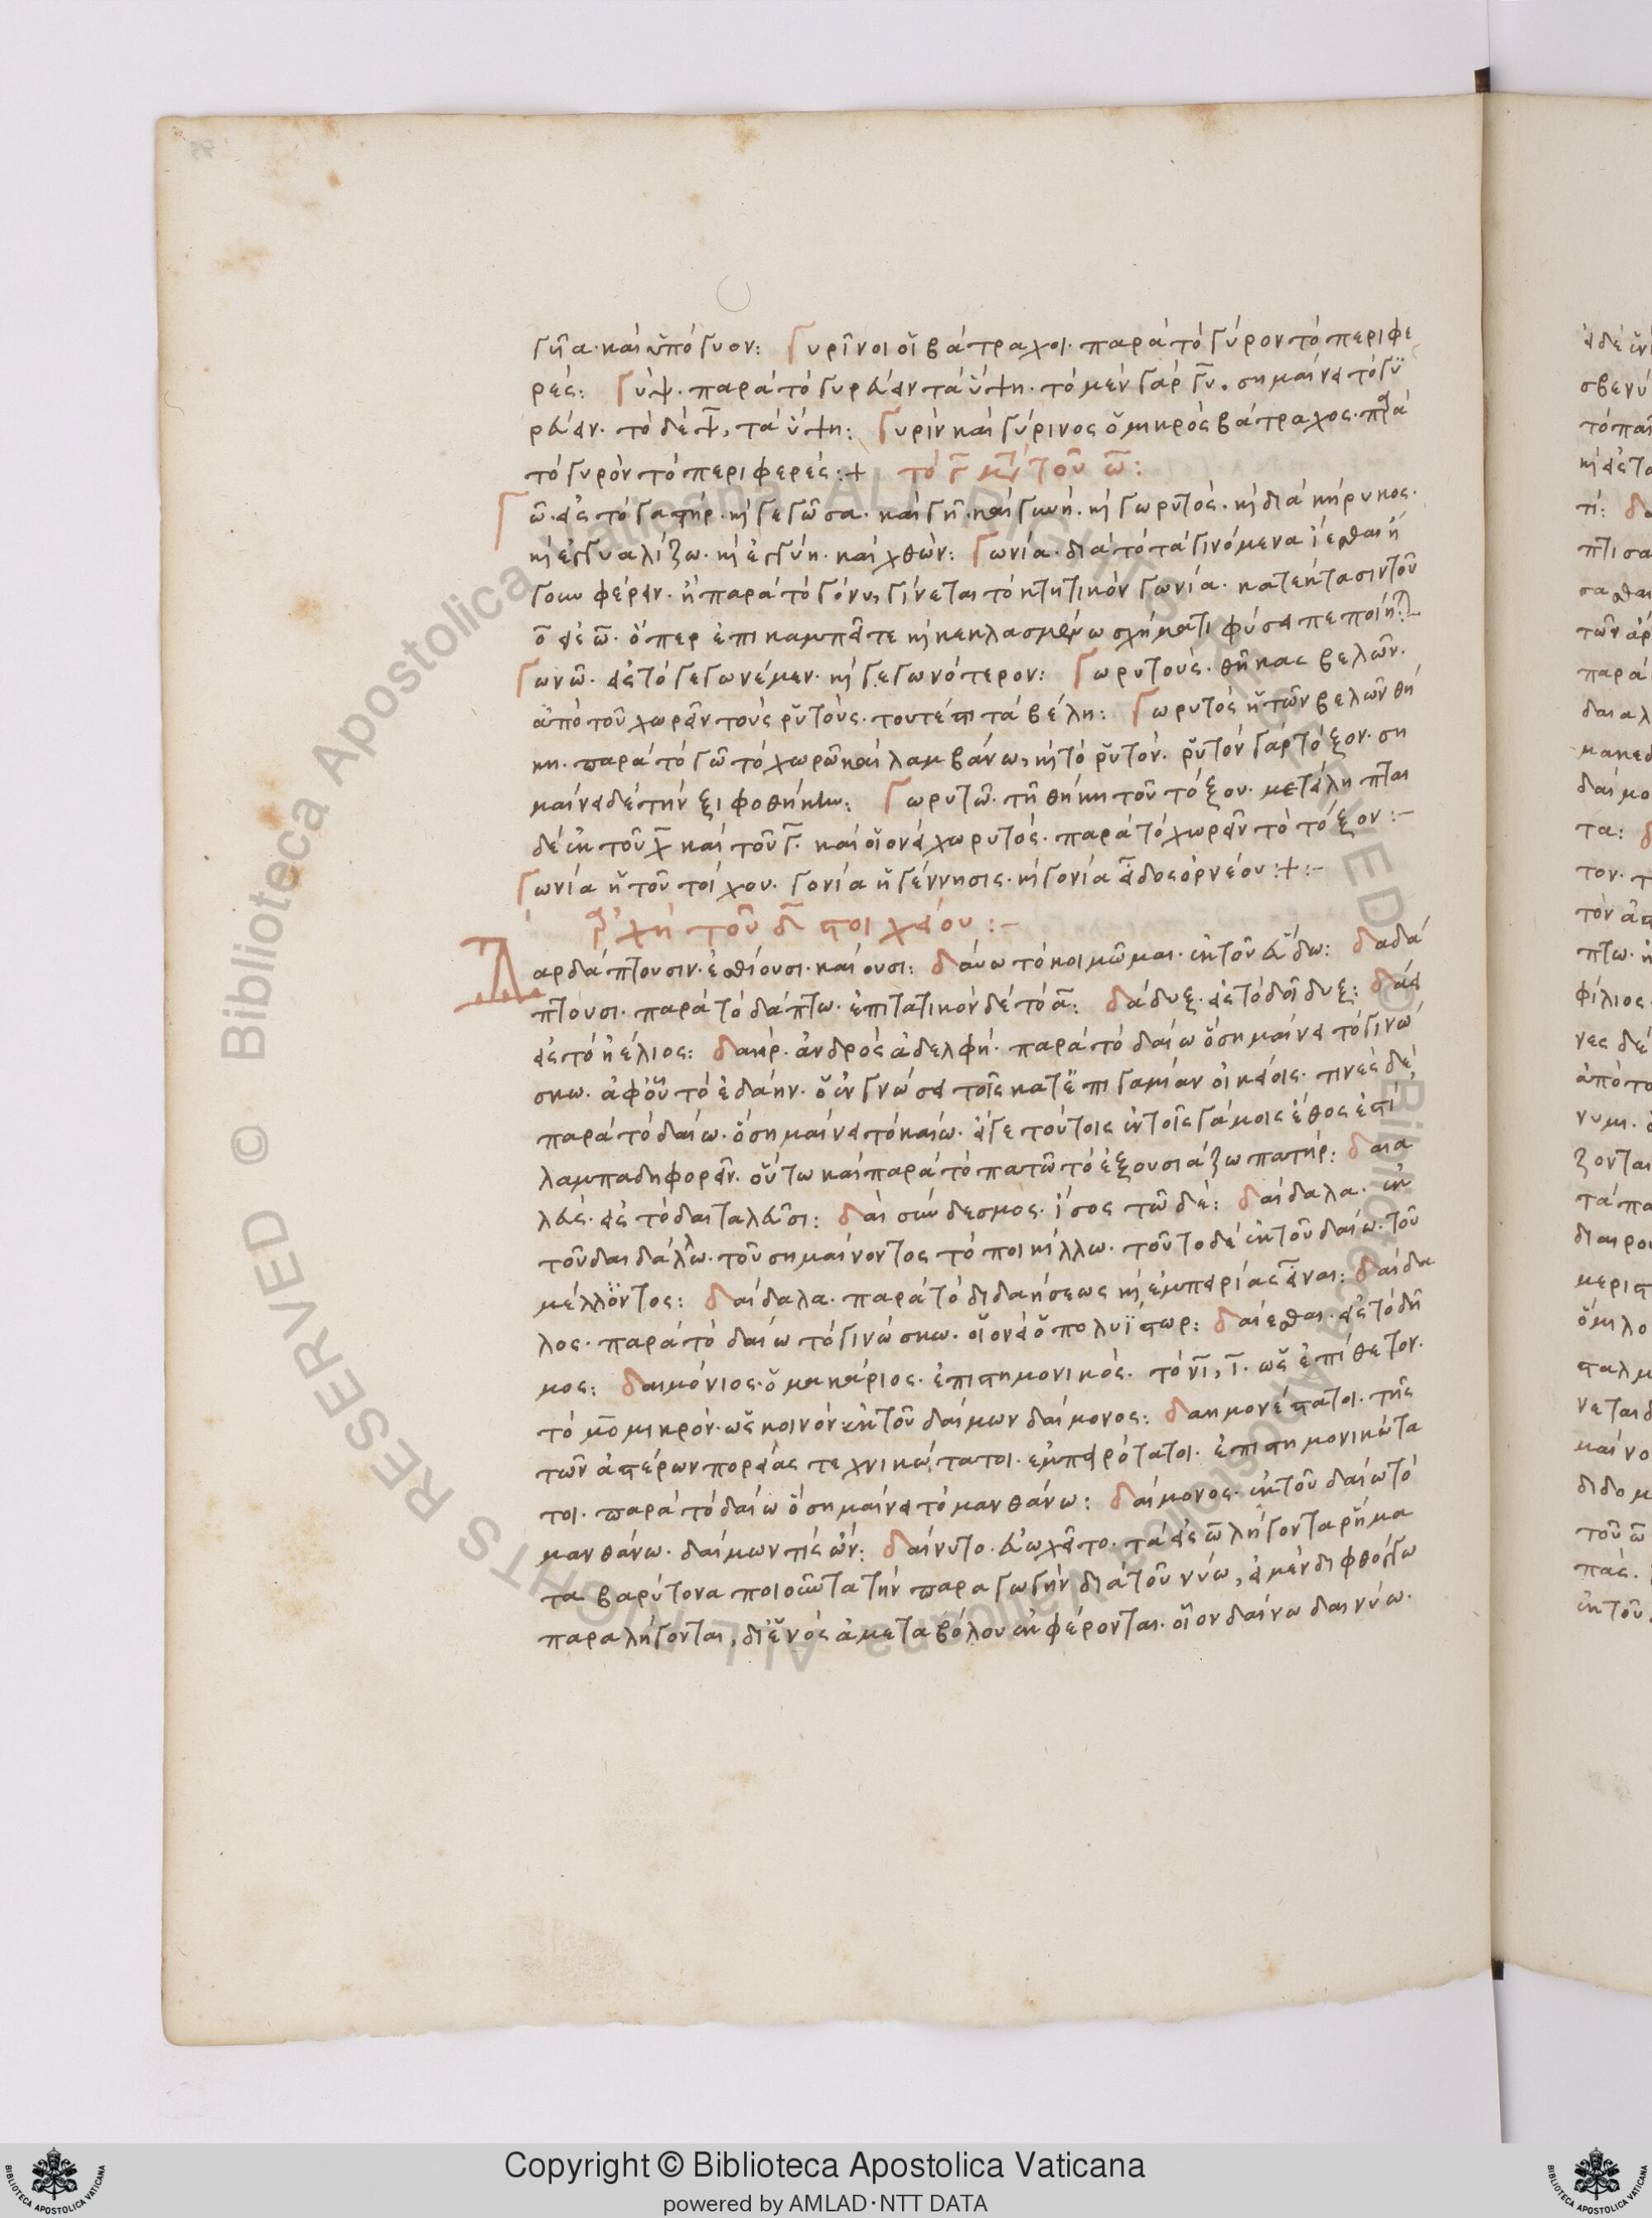 γῆα· καὶ ὑπόγυον: Γυρῖνοι οἱ βάτραχοι· παρὰ τὸ γύρον τὸ περιφε
ρές: Γύψ· παρὰ τὸ γυρεύειν τὰ ὕψη· τὸ μὲν γὰρ γυ, σημαίνει τὸ γυ
ρεύειν· τὸ δὲ ψ, τὰ ὕψη: Γυρὶν καὶ γύρινος ὁ μικρὸς βάτραχος· παρὰ
τὸ γυρὸν τὸ περιφερές:+ τὸ γ μετὰ τοῦ ω:
Γῶ· εἰς τὸ γαστήρ· καὶ γεγῶσα· καὶ γῆ· καὶ γωνή· καὶ γωρυτός· καὶ διὰ κήρυκος·
καὶ ἐγγυαλίζω· καὶ ἐγγύη· καὶ χθών: Γωνία· διὰ τὸ τὰ γινόμενα
φέρειν· ἢ παρὰ τὸ γόνυ, γίνεται τὸ κτητικὸν γωνία· κατ' ἔκτασιν τοῦ
ο εἰς ω· ὅπερ ἐπικαμπεῖ τε καὶ κεκλασμένω σχήματι φύσει πεποίηται
Γωνῶ· εἰς τὸ γεγωνέμεν· καὶ γεγωνότερον: Γωρυτούς· θήκας βελῶν·
ἀπὸ τοῦ χωρεῖν τοὺς ῥυτούς· τουτέστι τὰ βέλη: Γωρυτὸς ἡ τῶν βελῶν θή
κη· παρὰ τὸ γῶ τὸ χωρῶ καὶ λαμβάνω, καὶ τὸ ῥυτόν· ῥυτὸν γὰρ τὸ τόξον· ση
μαίνει δὲ τὴν ξιφοθήκην: Γωρυτῶ· τῆ θήκη τοῦ τόξου· μεταλήπται
δὲ ἐκ τοῦ χ καὶ τοῦ γ· καὶ οἱονεὶ χωρυτός· παρὰ τὸ χωρεῖν τὸ τόξον:–
Γωνία ἡ τοῦ τοίχου· γονία ἡ γέννησις· καὶ γονία εἶδος ὀρνέου:+:–
ἀρχὴ τοῦ δ στοιχείου:–
Δαρδάπτουσιν· ἐσθίουσι· καίουσι: δαύω τὸ κοιμῶμαι· ἐκ τοῦ εὕδω: δαδά
πτουσι· παρὰ τὸ δάπτω· ἐπιτατικὸν δὲ τὸ α: δάδυξ· εἰς τὸ δοῖδυξ: δάει
εἰς τὸ ἠέλιος: δαήρ· ἀνδρὸς ἀδελφή· παρὰ τὸ δαίω ὃ σημαίνει τὸ γινώ
σκω· ἀφ' οὗ τὸ ἐδάην· ὁ ἐν γνώσει τοῖς κατ' ἐπιγαμίαν οἰκείοις· τινὲς δὲ
παρὰ τὸ δαίω· ὃ σημαίνει τὸ καίω· εἴγε τούτοις ἐν τοῖς γάμοις ἔθος ἐστὶ
λαμπαδηφορεῖν· οὕτω καὶ παρὰ τὸ πατῶ τὸ ἐξουσιάζω πατήρ: δαια
λεύς· εἰς τὸ δαιταλεῦσι: δαὶ σύνδεσμος· ἴσος τῶ δέ: δαίδαλα· ἐκ
τοῦ δαιδάλλω· τοῦ σημαίνοντος τὸ ποικίλλω· τοῦτο δὲ ἐκ τοῦ δαίω· τοῦ
μέλλοντος: δαίδαλα· παρὰ τὸ διδαήσεως καὶ ἐμπειρίας εἶναι: δαίδα
λος· παρὰ τὸ δαίω τὸ γινώσκω· οἱονεὶ ὁ πολυΐστωρ: δαίεσθαι· εἰς τὸ δῆ
μος: δαιμόνιος· ὁ μακάριος· ἐπιστημονικός· τὸ νι, ι· ὡς ἐπίθετον·
τὸ μο μικρόν· ὡς κοινόν· ἐκ τοῦ δαίμων δαίμονος: δαημονέστατοι· τῆς
τῶν ἀστέρων πορείας τεχνικώτατοι· ἐμπειρότατοι· ἐπιστημονικώτα
τοι· παρὰ τὸ δαίω ὃ σημαίνει τὸ μανθάνω: δαίμονος· ἐκ τοῦ δαίω τὸ
μανθάνω· δαίμων τὶς ὤν: δαίνυτο· εὐωχεῖτο· τὰ εἰς ω λήγοντα ῥήμα
τα βαρύτονα ποιοῦντα τὴν παραγωγὴν διὰ τοῦ νύω, εἰ μὲν διφθόγγω
παραλήγονται, δι' ἑνὸς ἀμεταβόλου ἐκφέρονται· οἷον δαίνω δαινύω·